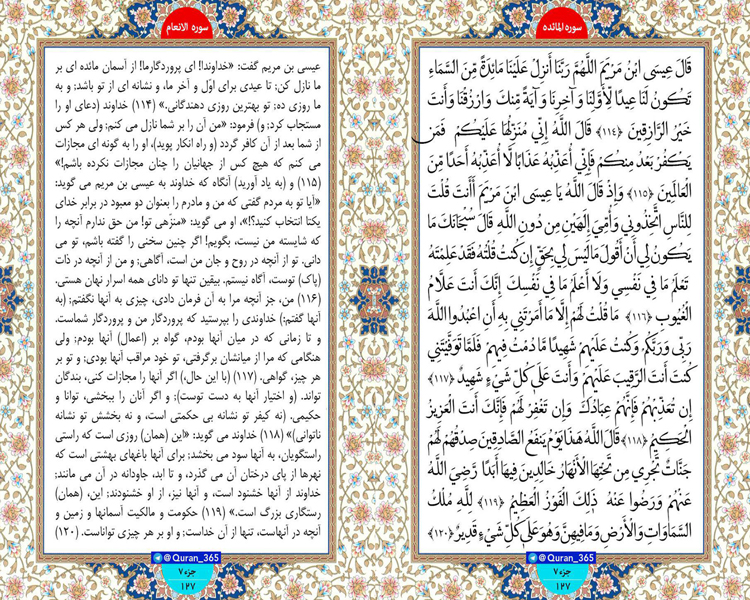 سوره المائده
قَالَ عِيسَى ابْنُ مَرْيَمَ اللَّهُمَّ رَبَّنَا أَنزِلْ عَلَيْنَا مَائِدَةً مِّنَ السَّمَاءِ
تَكُونُ لَنَا عِيدًا لِّأَوَّلِنَا وَآخِرِنَا وَآيَةً مِّنكَ وَارْزُقْنَا وَأَنتَ
خَيْرُ الرَّازِقِينَ ﴿١١٤﴾ قَالَ اللَّهُ إِنِّي مُنَزِّلُهَا عَلَيْكُمْ فَمَن
يَكْفُرْ بَعْدُ مِنكُمْ فَإِنِّي أُعَذِّبُهُ عَذَابًا لَّا أُعَذِّبُهُ أَحَدًا مِّنَ
الْعَالَمِينَ ﴿١١٥﴾ وَإِذْ قَالَ اللَّهُ يَا عِيسَى ابْنَ مَرْيَمَ أَأَنتَ قُلْتَ
لِلنَّاسِ اتَّخِذُونِي وَأُمِّيَ إِلَٰهَيْنِ مِن دُونِ اللَّهِ قَالَ سُبْحَانَكَ مَا
يَكُونُ لِي أَنْ أَقُولَ مَا لَيْسَ لِي بِحَقٍّ إِن كُنتُ قُلْتُهُ فَقَدْ عَلِمْتَهُ
تَعْلَمُ مَا فِي نَفْسِي وَلَا أَعْلَمُ مَا فِي نَفْسِكَ إِنَّكَ أَنتَ عَلَّامُ
الْغُيُوبِ ﴿١١٦﴾ مَا قُلْتُ لَهُمْ إِلَّا مَا أَمَرْتَنِي بِهِ أَنِ اعْبُدُوا اللَّهَ
رَبِّي وَرَبَّكُمْ وَكُنتُ عَلَيْهِمْ شَهِيدًا مَّا دُمْتُ فِيهِمْ فَلَمَّا تَوَفَّيْتَنِي
كُنتَ أَنتَ الرَّقِيبَ عَلَيْهِمْ وَأَنتَ عَلَى كُلِّ شَيْءٍ شَهِيدٌ ﴿١١٧﴾
إِن تُعَذِّبْهُمْ فَإِنَّهُمْ عِبَادُكَ وَإِن تَغْفِرْ لَهُمْ فَإِنَّكَ أَنتَ الْعَزِيزُ
الْحَكِيمُ ﴿١١٨﴾ قَالَ اللَّهُ هَذَا يَوْمُ يَنفَعُ الصَّادِقِينَ صِدْقُهُمْ لَهُمْ
جَنَّاتٌ تَجْرِي مِن تَحْتِهَا الْأَنْهَارُ خَالِدِينَ فِيهَا أَبَدًا رَّضِيَ اللَّهُ
عَنْهُمْ وَرَضُوا عَنْهُ ذَلِكَ الْفَوْزُ الْعَظِيمُ ﴿١١٩﴾ لِلَّهِ مُلْكُ
السَّمَاوَاتِ وَالْأَرْضِ وَمَا فِيهِنَّ وَهُوَ عَلَى كُلِّ شَيْءٍ قَدِيرٌ ﴿١٢٠﴾
@Quran_365
جزء ۷
۱۲۷
سوره الانعام
عیسی بن مریم گفت: «خداوندا! ای پروردگارما! از آسمان مائده ای بر
ما نازل کن؛ تا عیدی برای اوّل و آخر ما، و نشانه ای از تو باشد؛ و به
ما روزی ده؛ تو بهترین روزی دهندگانی.» (۱۱۴) خداوند (دعای او را
مستجاب کرد؛ و) فرمود: «من آن را بر شما نازل می کنم؛ ولی هر کس
از شما بعد از آن کافر گردد (و راه انکار پوید)، او را به گونه ای مجازات
می کنم که هیچ کس از جهانیان را چنان مجازات نکرده باشم!»
(۱۱۵) و (به یاد آورید) آنگاه که خداوند به عیسی بن مریم می گوید:
«آیا تو به مردم گفتی که من و مادرم را بعنوان دو معبود در برابر خدای
یکتا انتخاب کنید؟!»، او می گوید: «منزّهی تو! من حق ندارم آنچه را
که شایسته من نیست، بگویم! اگر چنین سخنی را گفته باشم، تو می
دانی. تو از آنچه در روح و جان من است، آگاهی؛ و من از آنچه در ذات
(پاک) توست، آگاه نیستم. بیقین تنها تو دانای همه اسرار نهان هستی.
(۱۱۶) من، جز آنچه مرا به آن فرمان دادی، چیزی به آنها نگفتم؛ (به
آنها گفتم:) خداوندی را بپرستید که پروردگار من و پروردگار شماست.
و تا زمانی که در میان آنها بودم، گواه بر (اعمال) آنها بودم؛ ولی
هنگامی که مرا از میانشان برگرفتی، تو خود مراقب آنها بودی؛ و تو بر
هر چیز، گواهی. (۱۱۷) (با این حال،) اگر آنها را مجازات کنی، بندگان
تواند. (و اختیار آنها به دست توست)؛ و اگر آنان را ببخشی، توانا و
حکیمی. (نه کیفر تو نشانه بی حکمتی است، و نه بخشش تو نشانه
ناتوانی)» (۱۱۸) خداوند می گوید: «این (همان) روزی است که راستی
راستگویان، به آنها سود می بخشد؛ برای آنها باغهای بهشتی است که
نهرها از پای درختان آن می گذرد، و تا ابد، جاودانه در آن می مانند؛
خداوند از آنها خشنود است، و آنها نیز، از او خشنودند؛ این، (همان)
رستگاری بزرگ است.» (۱۱۹) حکومت و مالکیت آسمانها و زمین و
آنچه در آنهاست، تنها از آن خداست؛ و او بر هر چیزی تواناست. (۱۲۰)
@Quran_365
جزء ۷
۱۲۷